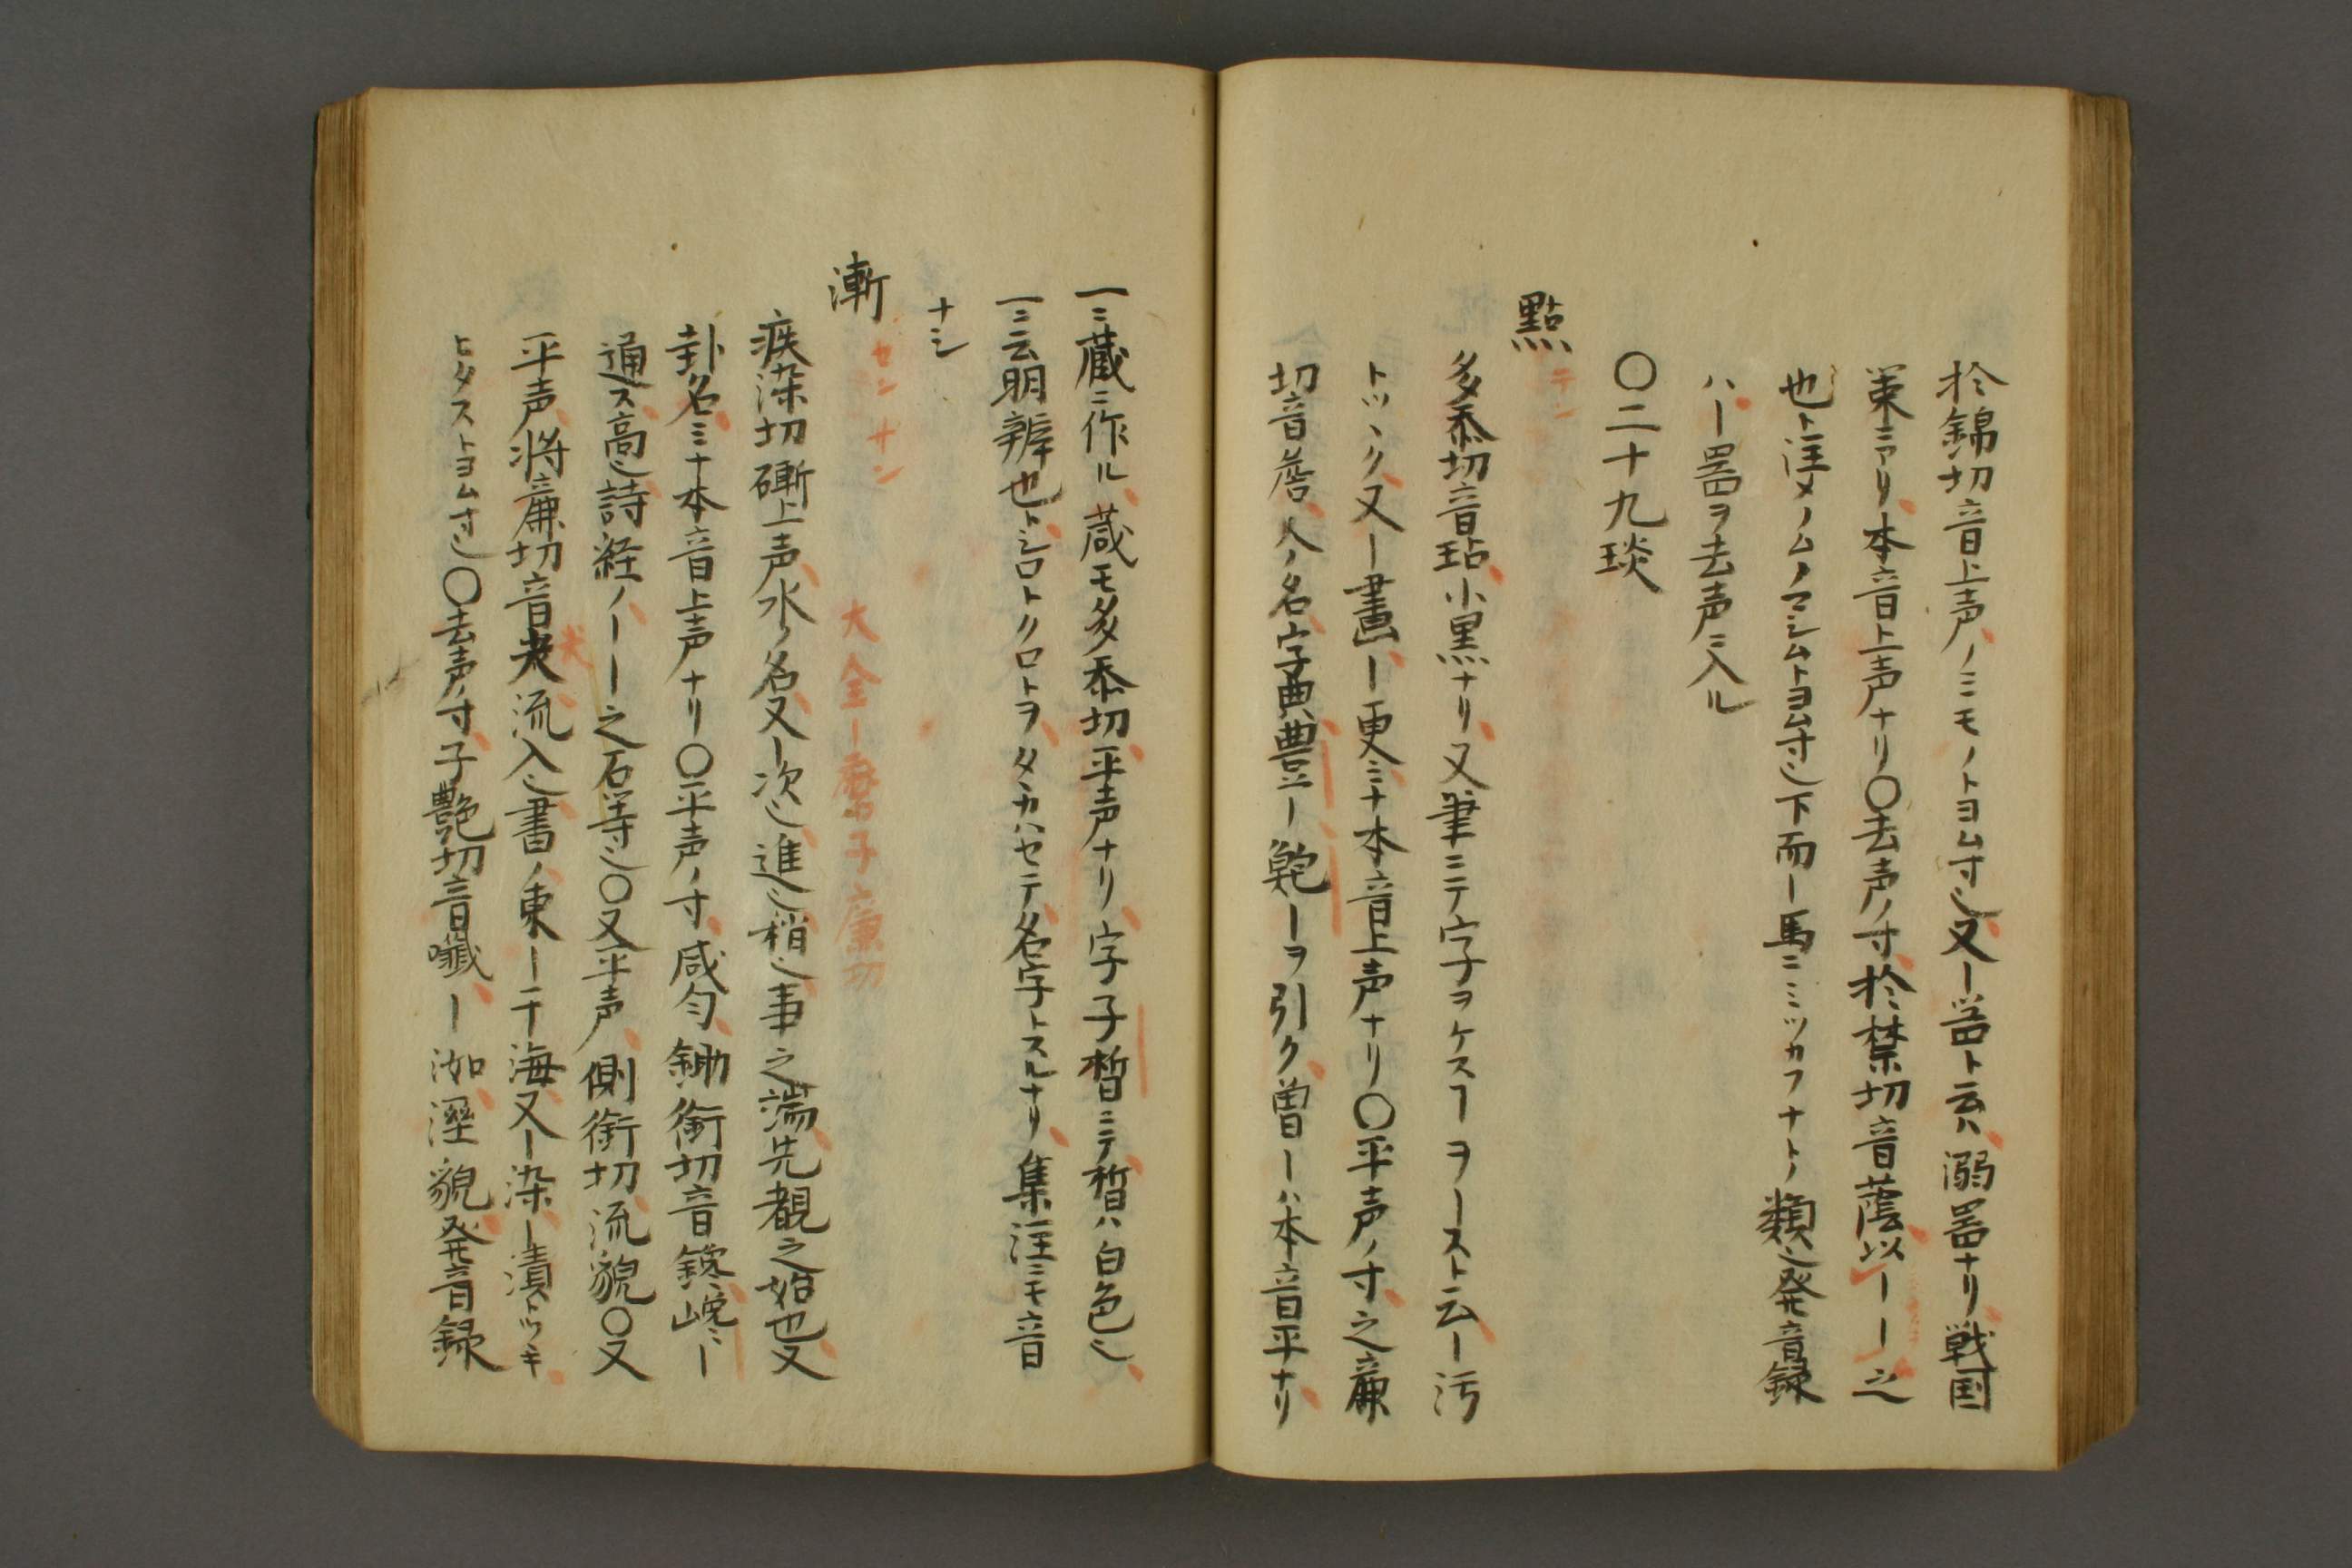 於錦切音上声ノミモノトヨム寸也又ー噐ト云ハ溺噐ナリ戦国
策ニアリ本音上声ナリ〇去声ノ寸於禁切音蔭以ーー之
也ト注メノムノマシムトヨム寸也下而ー馬ニミツカフナトノ類也発音録
ハー噐ヲ去声ニ入ル
〇二十九琰
點 テン
多忝切音玷小黒ナリ又筆ニテ字ヲケスヿヲーストニ云ー污
トツヽク又ー畫ー更ミナ本音上声ナリ〇平声ノ寸之廉
切音詹人ノ名字典豊ー鮑ーヲ引ク曽ーハ本音平ナリ
一ニ蔵ニ作ル蔵モ多忝切平声ナリ字子晳ニテ晳ハ白色也
一ニ云明辨也トシロトクロトヲタカハセテ名字トスルナリ集注ニモ音
ナシ
漸 センサン 大全ー音子廉切
疾染切磛上声水ノ名又ー次也進也稍也事之端先覩之始也又
卦名ミナ本音上声ナリ〇平声ノ寸咸匀鋤銜切音鑱巉ニ
通ス高也詩経ノーー之石等也〇又平声側銜切流貌〇又
平声将廉切音尖流入也書ノ東ー于海又ー染ー漬トツキ
ヒタストヨム寸也〇去声ノ寸子艶切音ー洳溼貌発音録